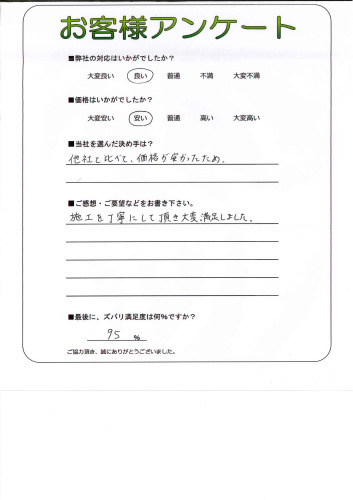 お客様アンケート
■弊社の対応はいかがでしたか?
大変良い 良い 普通 不満 大変不満
■価格はいかがでしたか?
大変安い 安い 普通 高い 大変高い
■当社を選んだ決め手は?
他社と比べて、価格が安かったため。
■ご感想・ご要望などをお書き下さい。
施工を丁寧にして頂き大変満足しました。
■最後に、ズバリ満足度は何%ですか?
95 %
ご協力頂き、誠にありがとうございました。